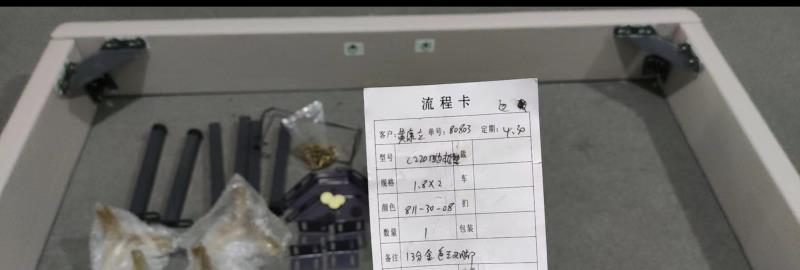 流程卡
客户: 单号: 80803 定期: 4.30
型号 裁
规格 1.8×2 车
颜色 811-30-08 扪
数量 1 包装
备注 13分金色